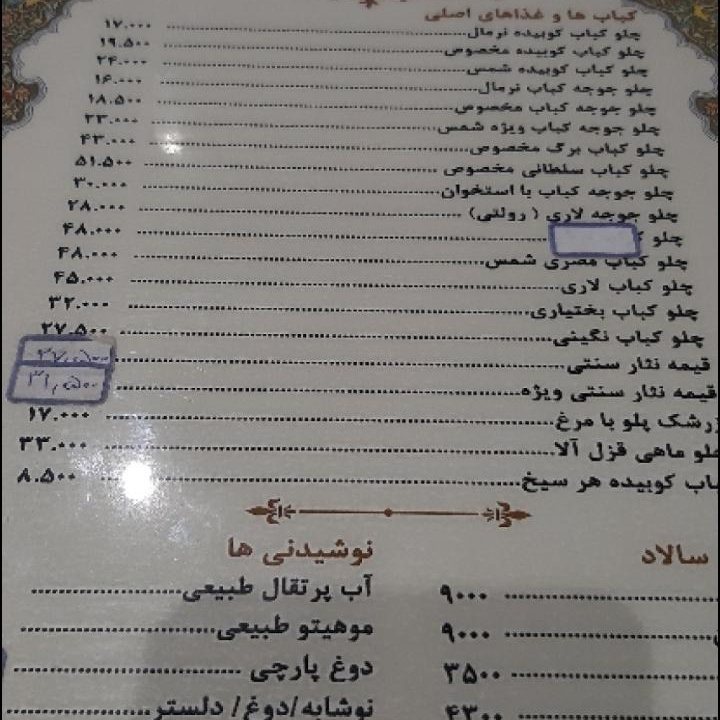 کباب ها و غذاهای اصلی
چلو کباب کوبیده نرمال ۱۷.۰۰۰
چلو کباب کوبیده مخصوص ۱۹.۵۰۰
چلو کباب کوبیده شمس ۲۴.۰۰۰
چلو جوجه کباب نرمال ۱۶.۰۰۰
چلو جوجه کباب مخصوص ۱۸.۵۰۰
چلو جوجه کباب ویژه شمس ۲۳.۰۰۰
چلو کباب برگ مخصوص ۴۳.۰۰۰
چلو کباب سلطانی مخصوص ۵۱.۵۰۰
چلو جوجه کباب با استخوان ۳۰.۰۰۰
چلو جوجه لاری ( رولتی) ۲۸.۰۰۰
چلو ۴۸.۰۰۰
چلو کباب مصری شمس ۴۸.۰۰۰
چلو کباب لاری ۴۵.۰۰۰
چلو کباب بختیاری ۳۲.۰۰۰
چلو کباب نگینی ۲۷.۵۰۰
قیمه نثار سنتی ۲۷,۵۰۰
قیمه نثار سنتی ویژه ۳۱,۵۰۰
زرشک پلو با مرغ ۱۷.۰۰۰
لو ماهی قزل آلا ۳۳.۰۰۰
اب کوبیده هر سیخ ۸.۵۰۰
سالاد
۹۰۰۰
۹۰۰۰
۳۵۰۰
۴۳۰۰
نوشیدنی ها
آب پرتقال طبیعی
موهیتو طبیعی
دوغ پارچی
نوشابه/دوغ/ دلستر